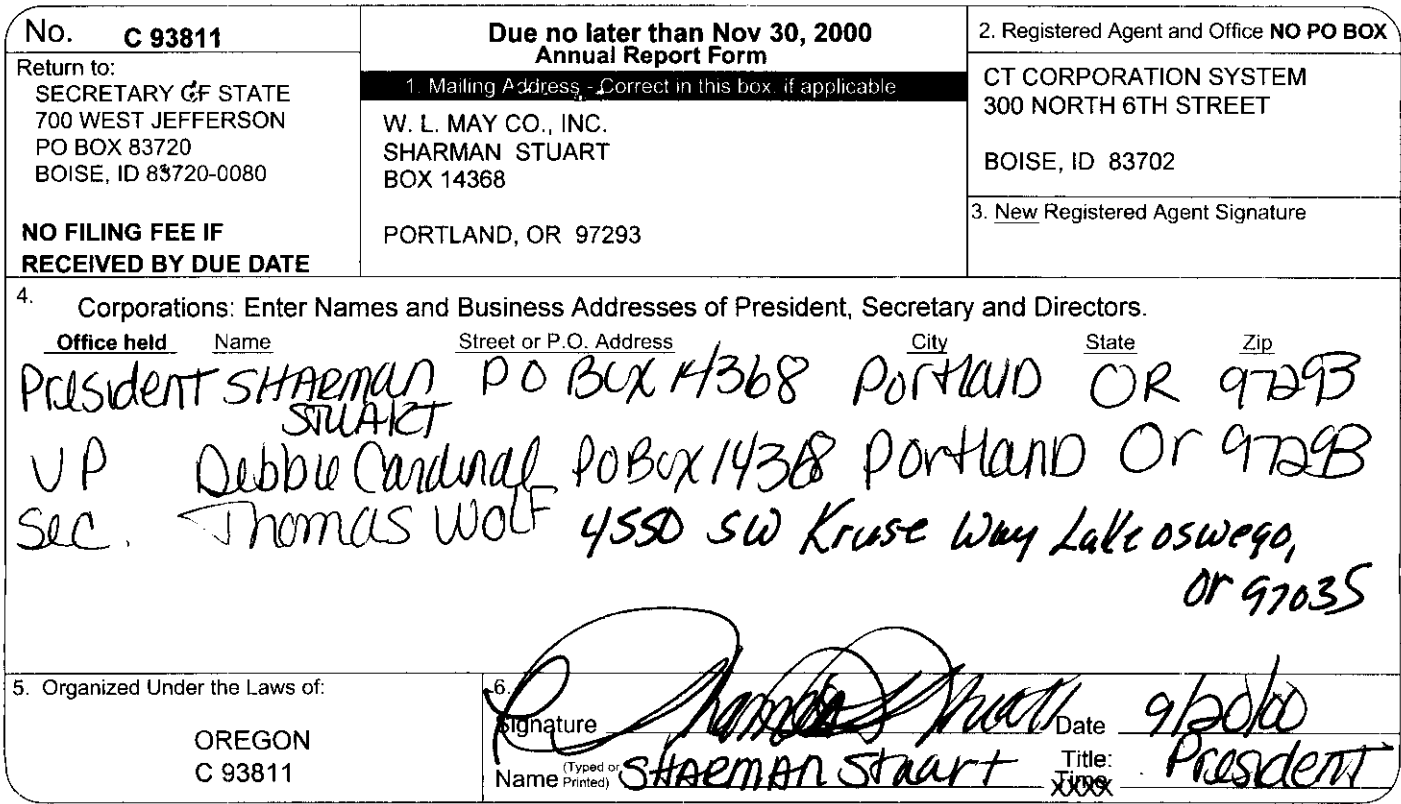 No. C 93811
Return to:
SECRETARY OF STATE
700 WEST JEFFERSON
PO BOX 83720
BOISE, ID 83720-0080
NO FILING FEE IF
RECEIVED BY DUE DATE
Due no later than Nov 30, 2000
Annual Report Form
1. Mailing Address - Correct in this box, if applicable
W. L. MAY CO., INC.
SHARMAN STUART
BOX 14368
PORTLAND, OR 97293
2. Registered Agent and Office NO PO BOX
CT CORPORATION SYSTEM
300 NORTH 6TH STREET
BOISE, ID 83702
3. New Registered Agent Signature
4. Corporations: Enter Names and Business Addresses of President, Secretary and Directors.
Office held Name Street or P.O. Address City State Zip
President SHARMAN PO Box 14368 Portland OR 97293
STUART
VP Debbie Cardinal PO Box 14368 Portland Or 97293
Sec. Thomas Wolf 4550 SW Kruse Way Lake oswego,
or 97035
5. Organized Under the Laws of:
OREGON
C 93811
6.
Signature Sharman Stuart Date 9/20/00
Name (Typed or Printed) SHARMAN Stuart Title: President